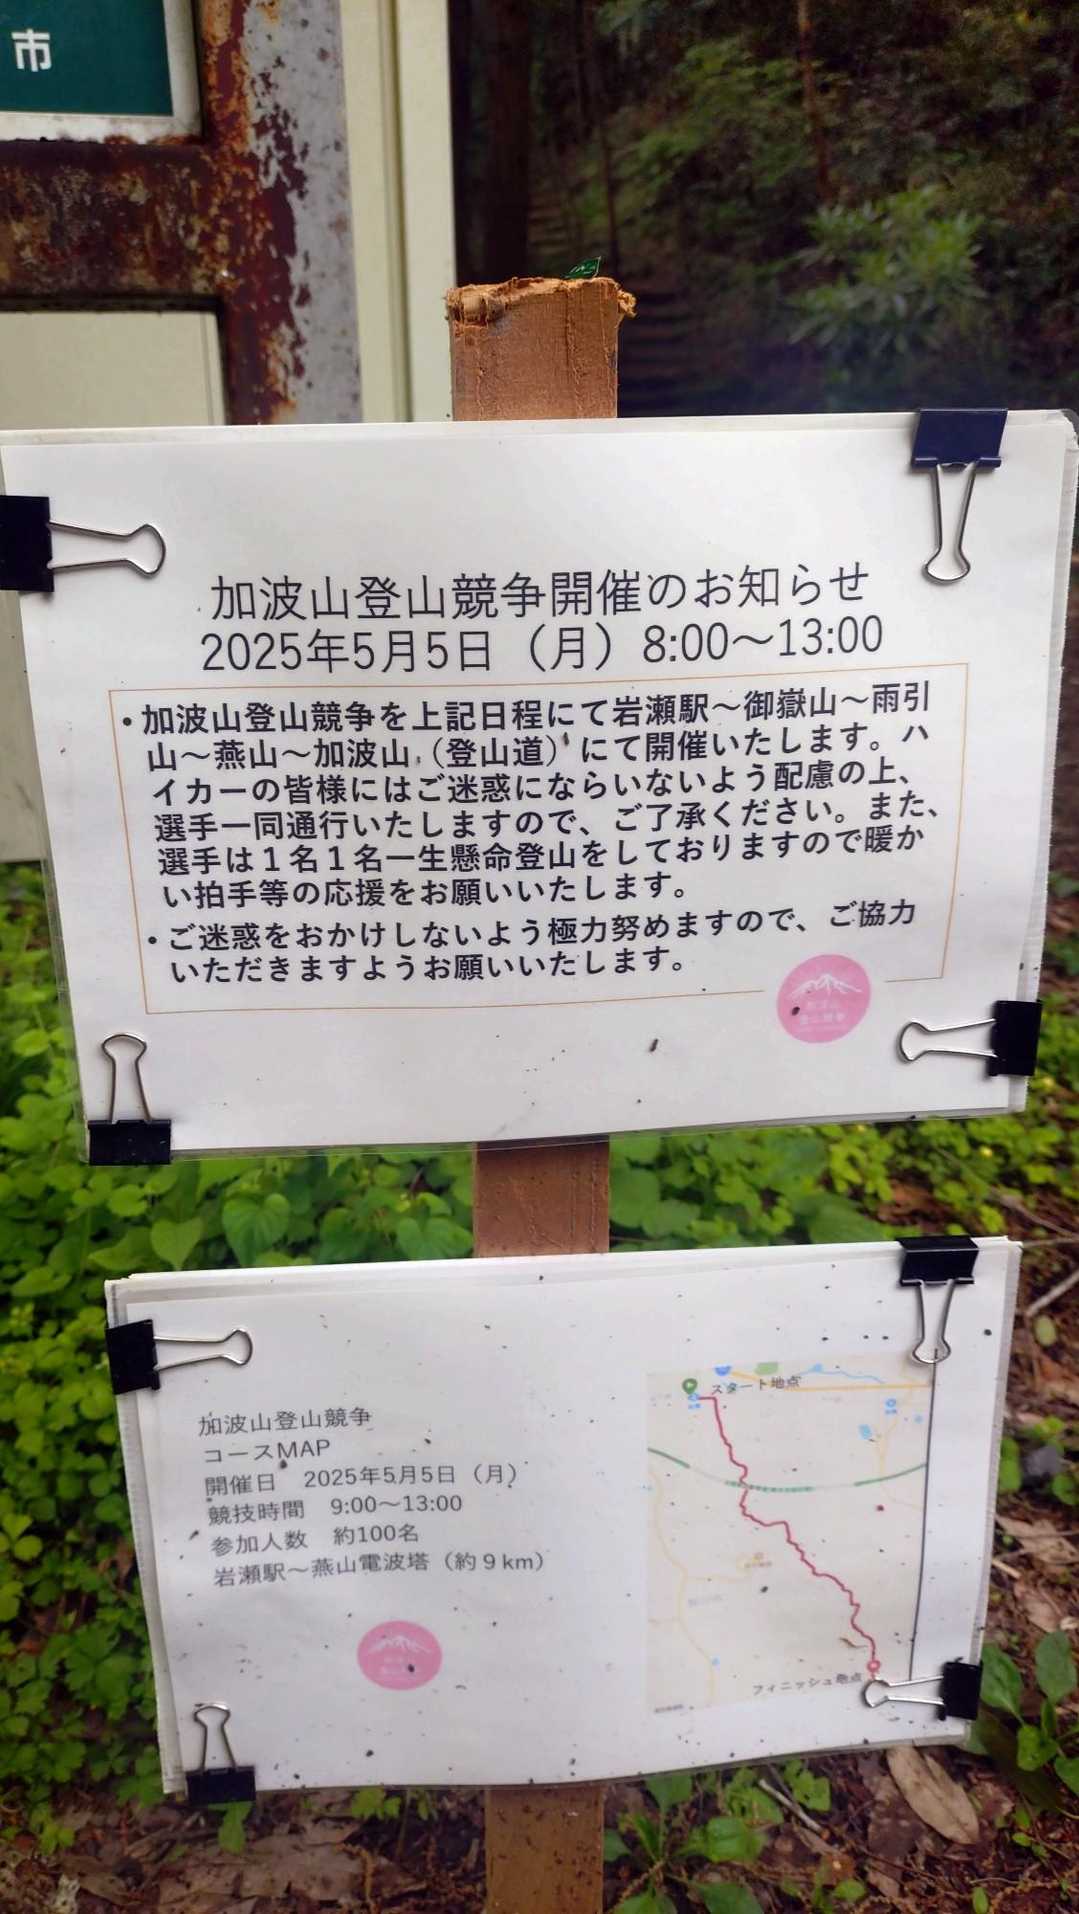 市
加波山登山競争開催のお知らせ
2025年5月5日（月）8:00～13:00
・加波山登山競争を上記日程にて岩瀬駅～御嶽山～雨引
山～燕山～加波山（登山道）にて開催いたします。ハ
イカーの皆様にはご迷惑にならいないよう配慮の上、
選手一同通行いたしますので、ご了承ください。また、
選手は１名１名一生懸命登山をしておりますので暖か
い拍手等の応援をお願いいたします。
・ご迷惑をおかけしないよう極力努めますので、ご協力
いただきますようお願いいたします。
加波山
登山競争
加波山登山競争
コースMAP
開催日　2025年5月5日（月）
競技時間　9:00～13:00
参加人数　約100名
岩瀬駅～燕山電波塔（約９km）
スタート地点
フィニッシュ地点